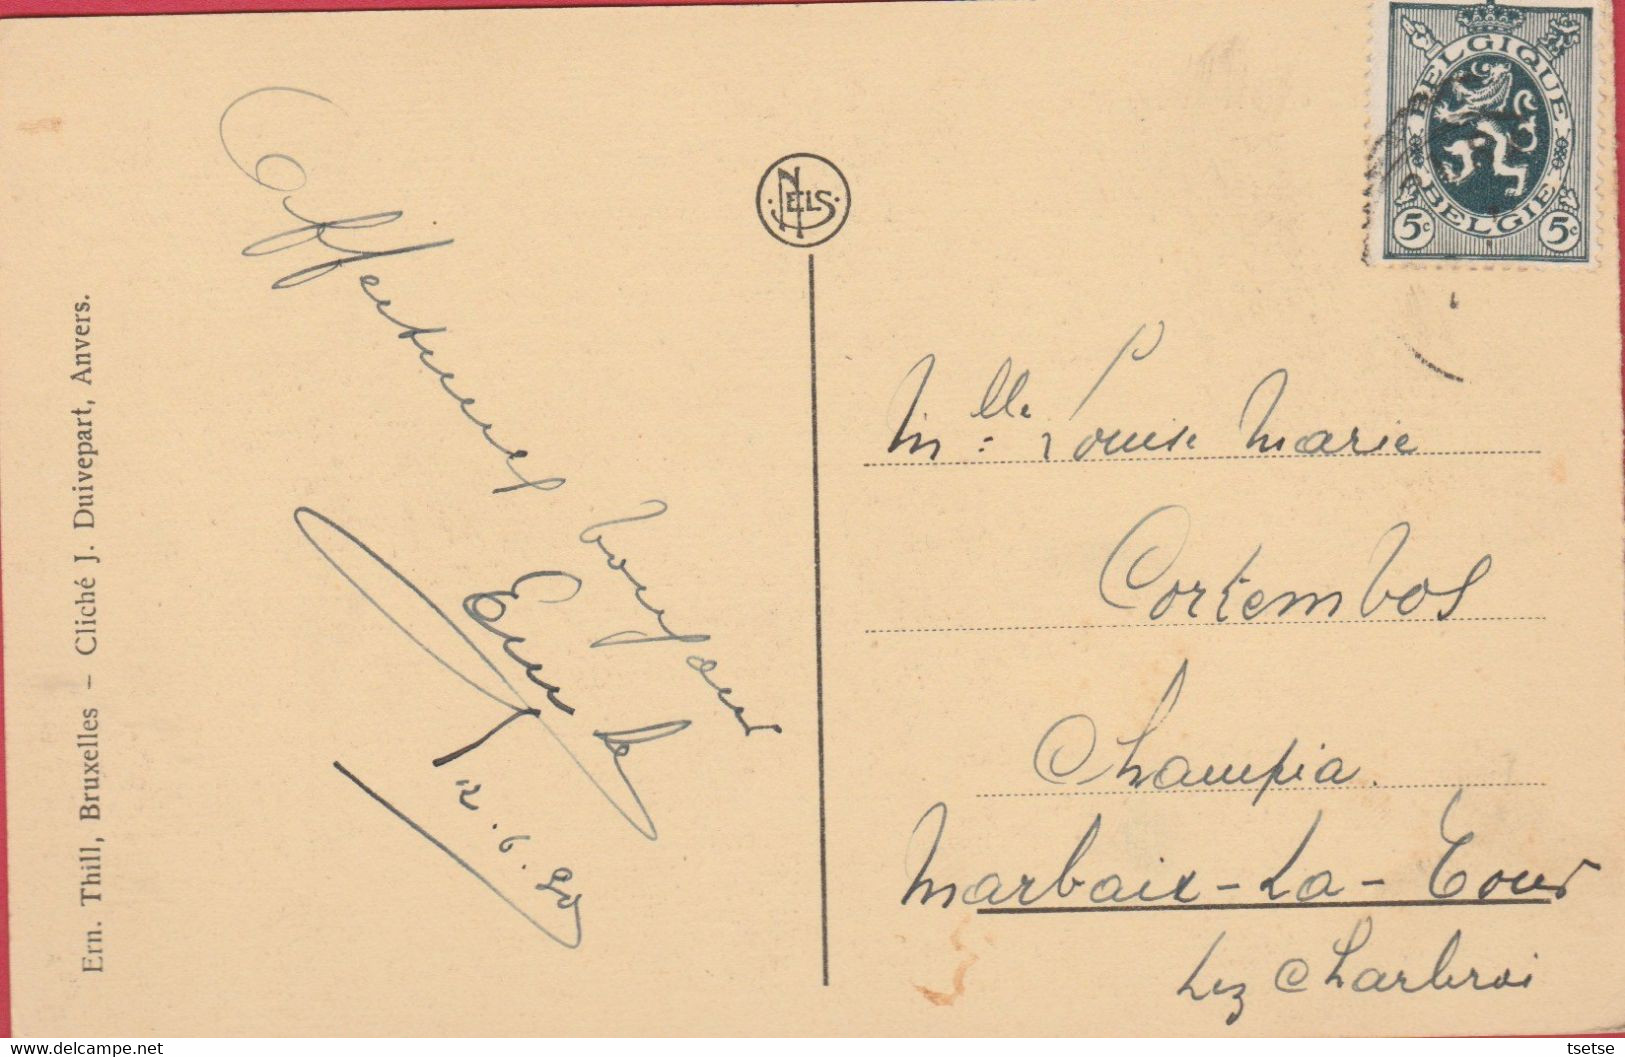 Ern. Thill, Bruxelles – Cliché J. Duivepart, Anvers.
Affectueux bonjour
12.6.
NELS
BELGIQUE
BELGIE
5c 5c
Mlle Louise Marie
Cortembos
Champia.
Marbaix-La-Tour
Lez Charleroi
tsetse